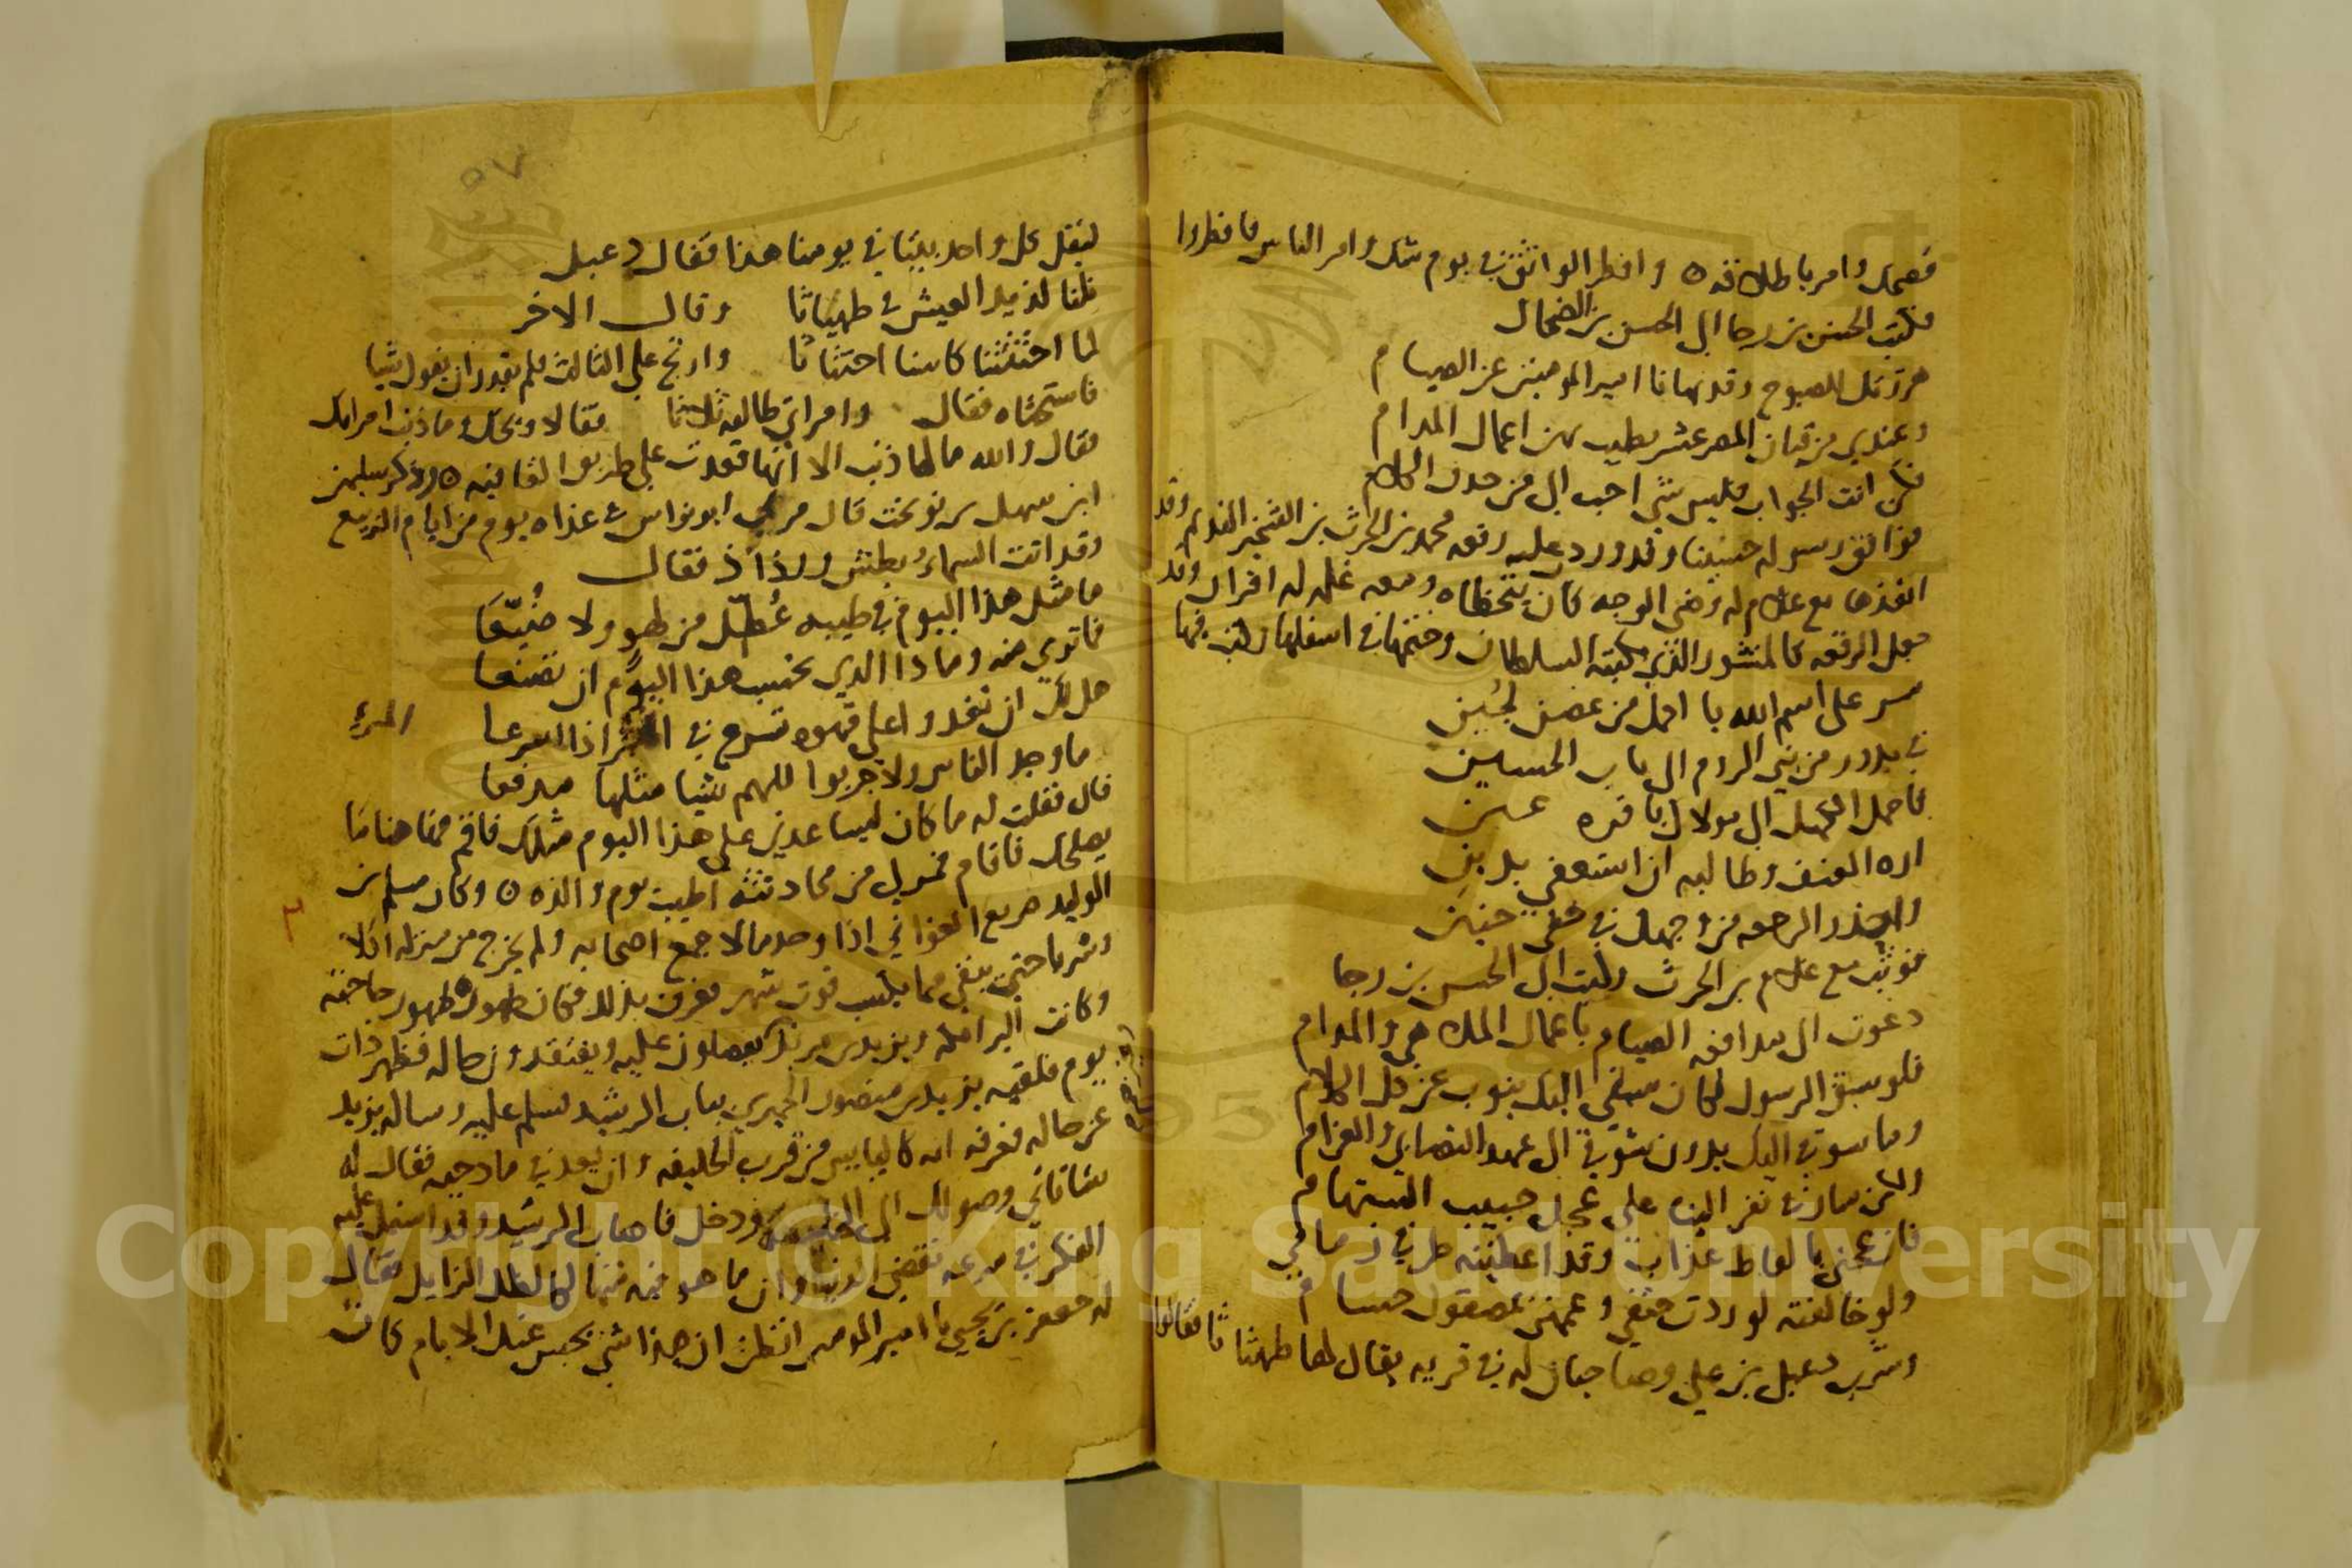 فضحك وامر باطلاقه ه وافطر الواثق في يوم شك وامر الناس فافطروا
فكتب الحسن بن رجا الى الحسين بن الضحاك
هززتك للصبوح وقد نهانا امير المومنين عن الصيام
وعندي من قيان المصر عشر يطيب بهن اعمال المدام
فكن انت الجواب فليس شي احب الي من حذف الكلام
فوافق رسوله حسينا وقد ورد عليه رقعه محمد بن الحرث بن الشخير القدم وقد
انفذها مع غلام له وضي الوجه كان يتحظاه ومعه غلمه له اقران وقد
جعل الرقعه كالمنشور الذي يكتبه السلطان وختمها في اسفلها وكتب فيها
سر على اسم الله يا احمل من غصن لجين
في بدور من بني الروم الى باب الحسين
فاحمل الكهل الى مولاك يا قره عين
اره العنف وطالبه ان استعفى بدين
واحذر الرجعه من وجهك في خفي حنين
فوثب مع غلام بن الحرث وكتب الى الحسن بن رجا
دعوت الى مدافعه الصيام باعمال الملاهي والمدام
فلو سبق الرسول لكان سعي اليك ينوب عن حل الكلام
وما شوقي اليك بدون شوقي الى عهد التصابي والغرام
ولكن سار في نفر الينا على عجل حبيب المستهام
فازعجني بالفاظ عذاب وقد اعطيته طرفي زمامي
ولو خالفته لوردت حتفي وعممني بمصقول حسام
وشرب دعبل بن علي وصاحبان له في قريه يقال لها طهياثا فقالوا
٥٧
ليقل كل واحد بيتا في يومنا هذا فقال دعبل
نلنا لذيذ العيش في طهياثا وقال الاخر
لما احتثثنا كاسنا احتثاثا وارتج على الثالث فلم يقدر ان يقول شيا
فاستحثاه فقال وامراتي طالقه ثلاثا فقالا ويحك وما ذنب امراتك
فقال والله ما لها ذنب الا انها قعدت على طريق القافيه ه وذكر سليمن
ابن سهل بن نوبخت قال مر بي ابو نواس في غداه يوم من ايام الربيع
وقد اتت السماء بطش ورذاذ فقال
ما مثل هذا اليوم في طيبه عُطّل من لهو ولا ضُيّعا
فاتوى منه وماذا الذي تحسب هذا اليوم ان تصنعا
هل لك ان تغدو على قهوه تسرع في المرء اذا اسرعا
المرء
ما وجد الناس ولا جربوا للهم شيا مثلها مدفعا
قال فقلت له ما كان ليساعدني على هذا اليوم مثلك فاقم فقاهنا ما
يصلحك فاقام فمر لي من محادثته اطيب يوم والذه ه وكان مسلم بن
الوليد صريع الغواني اذا وجد مالا جمع اصحابه ولم يخرج من منزله اكلا
وشربا حتى يبقى مما يكتسب قوت شهر فعرف بذلك فكان ظهوره ظهور حاجته
وكانت البرامكه ويزيد بن مزيد يفضلون عليه ويفتقدون حاله فظهر ذات
يوم فلقيه يزيد بن منصور الحميري بباب الرشيد فسلم عليه وساله يزيد
عن حاله فعرفه انه كاليايس من قرب الخليفه وان يعد في مادحيه فقال له
سَاتاتي وصولك الى الخليفه ودخل فاصاب الرشيد وقد اشتمل عليه
الفكر في سرعه تقضي الدنيا وان ما هو فيه منها كالظل الزايل فقال
له جعفر بن يحيى يا امير المومنين اتظن ان هذا شي يحبس عنك الايام كانت
Copyright © King Saud University